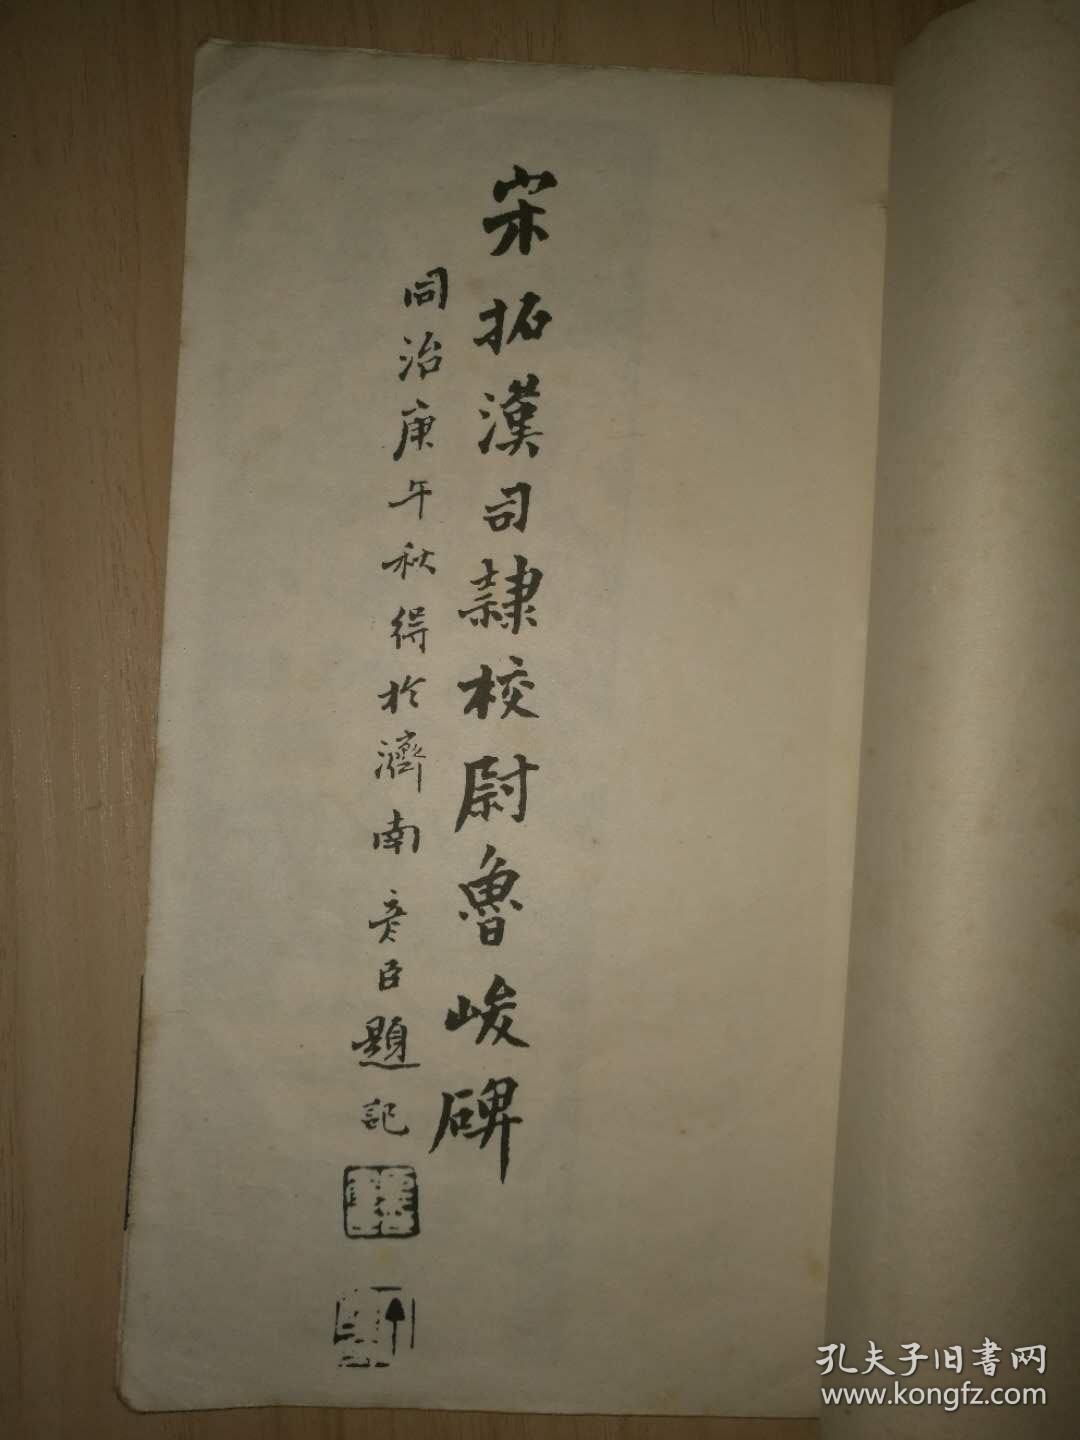 宋拓漢司隸校尉魯峻碑
同治庚午秋得於濟南彥臣題記
孔夫子旧書网
www.kongfz.com